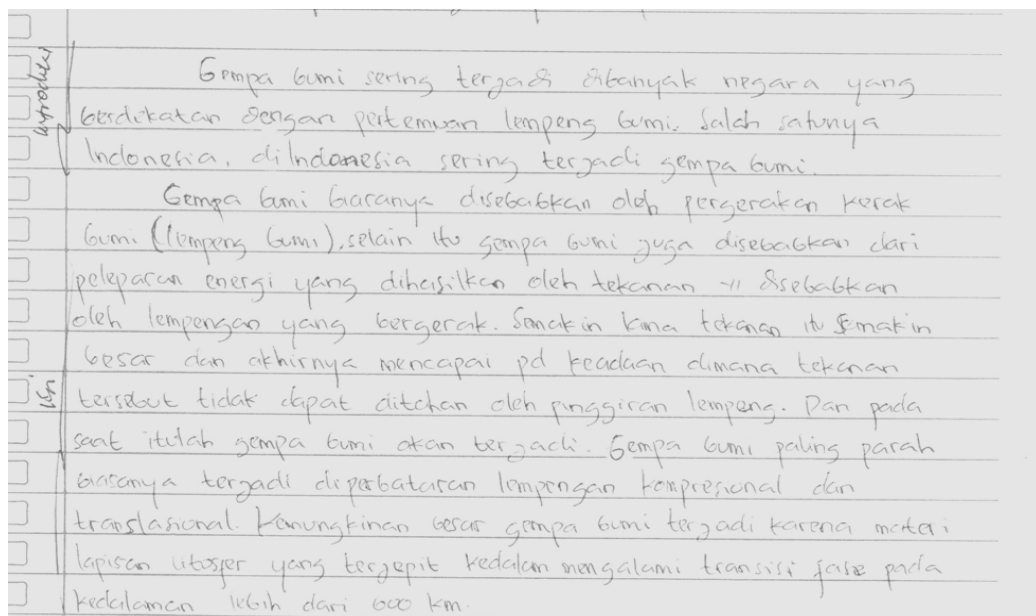 Introduksi
Gempa bumi sering terjadi dibanyak negara yang
berdekatan dengan pertemuan lempeng bumi. Salah satunya
Indonesia, diIndonesia sering terjadi gempa bumi.
Gempa bumi biasanya disebabkan oleh pergerakan kerak
bumi (lempeng bumi), selain itu gempa bumi juga disebabkan dari
pelepasan energi yang dihasilkan oleh tekanan disebabkan
oleh lempengan yang bergerak. Semakin lama tekanan itu semakin
besar dan akhirnya mencapai pd keadaan dimana tekanan
tersebut tidak dapat ditahan oleh pinggiran lempeng. Dan pada
isi
saat itulah gempa bumi akan terjadi. Gempa bumi paling parah
biasanya terjadi diperbatasan lempengan kompresional dan
translasional. Kemungkinan besar gempa bumi terjadi karena materi
lapisan litosfer yang terjepit kedalam mengalami transisi fase pada
kedalaman lebih dari 600 km.